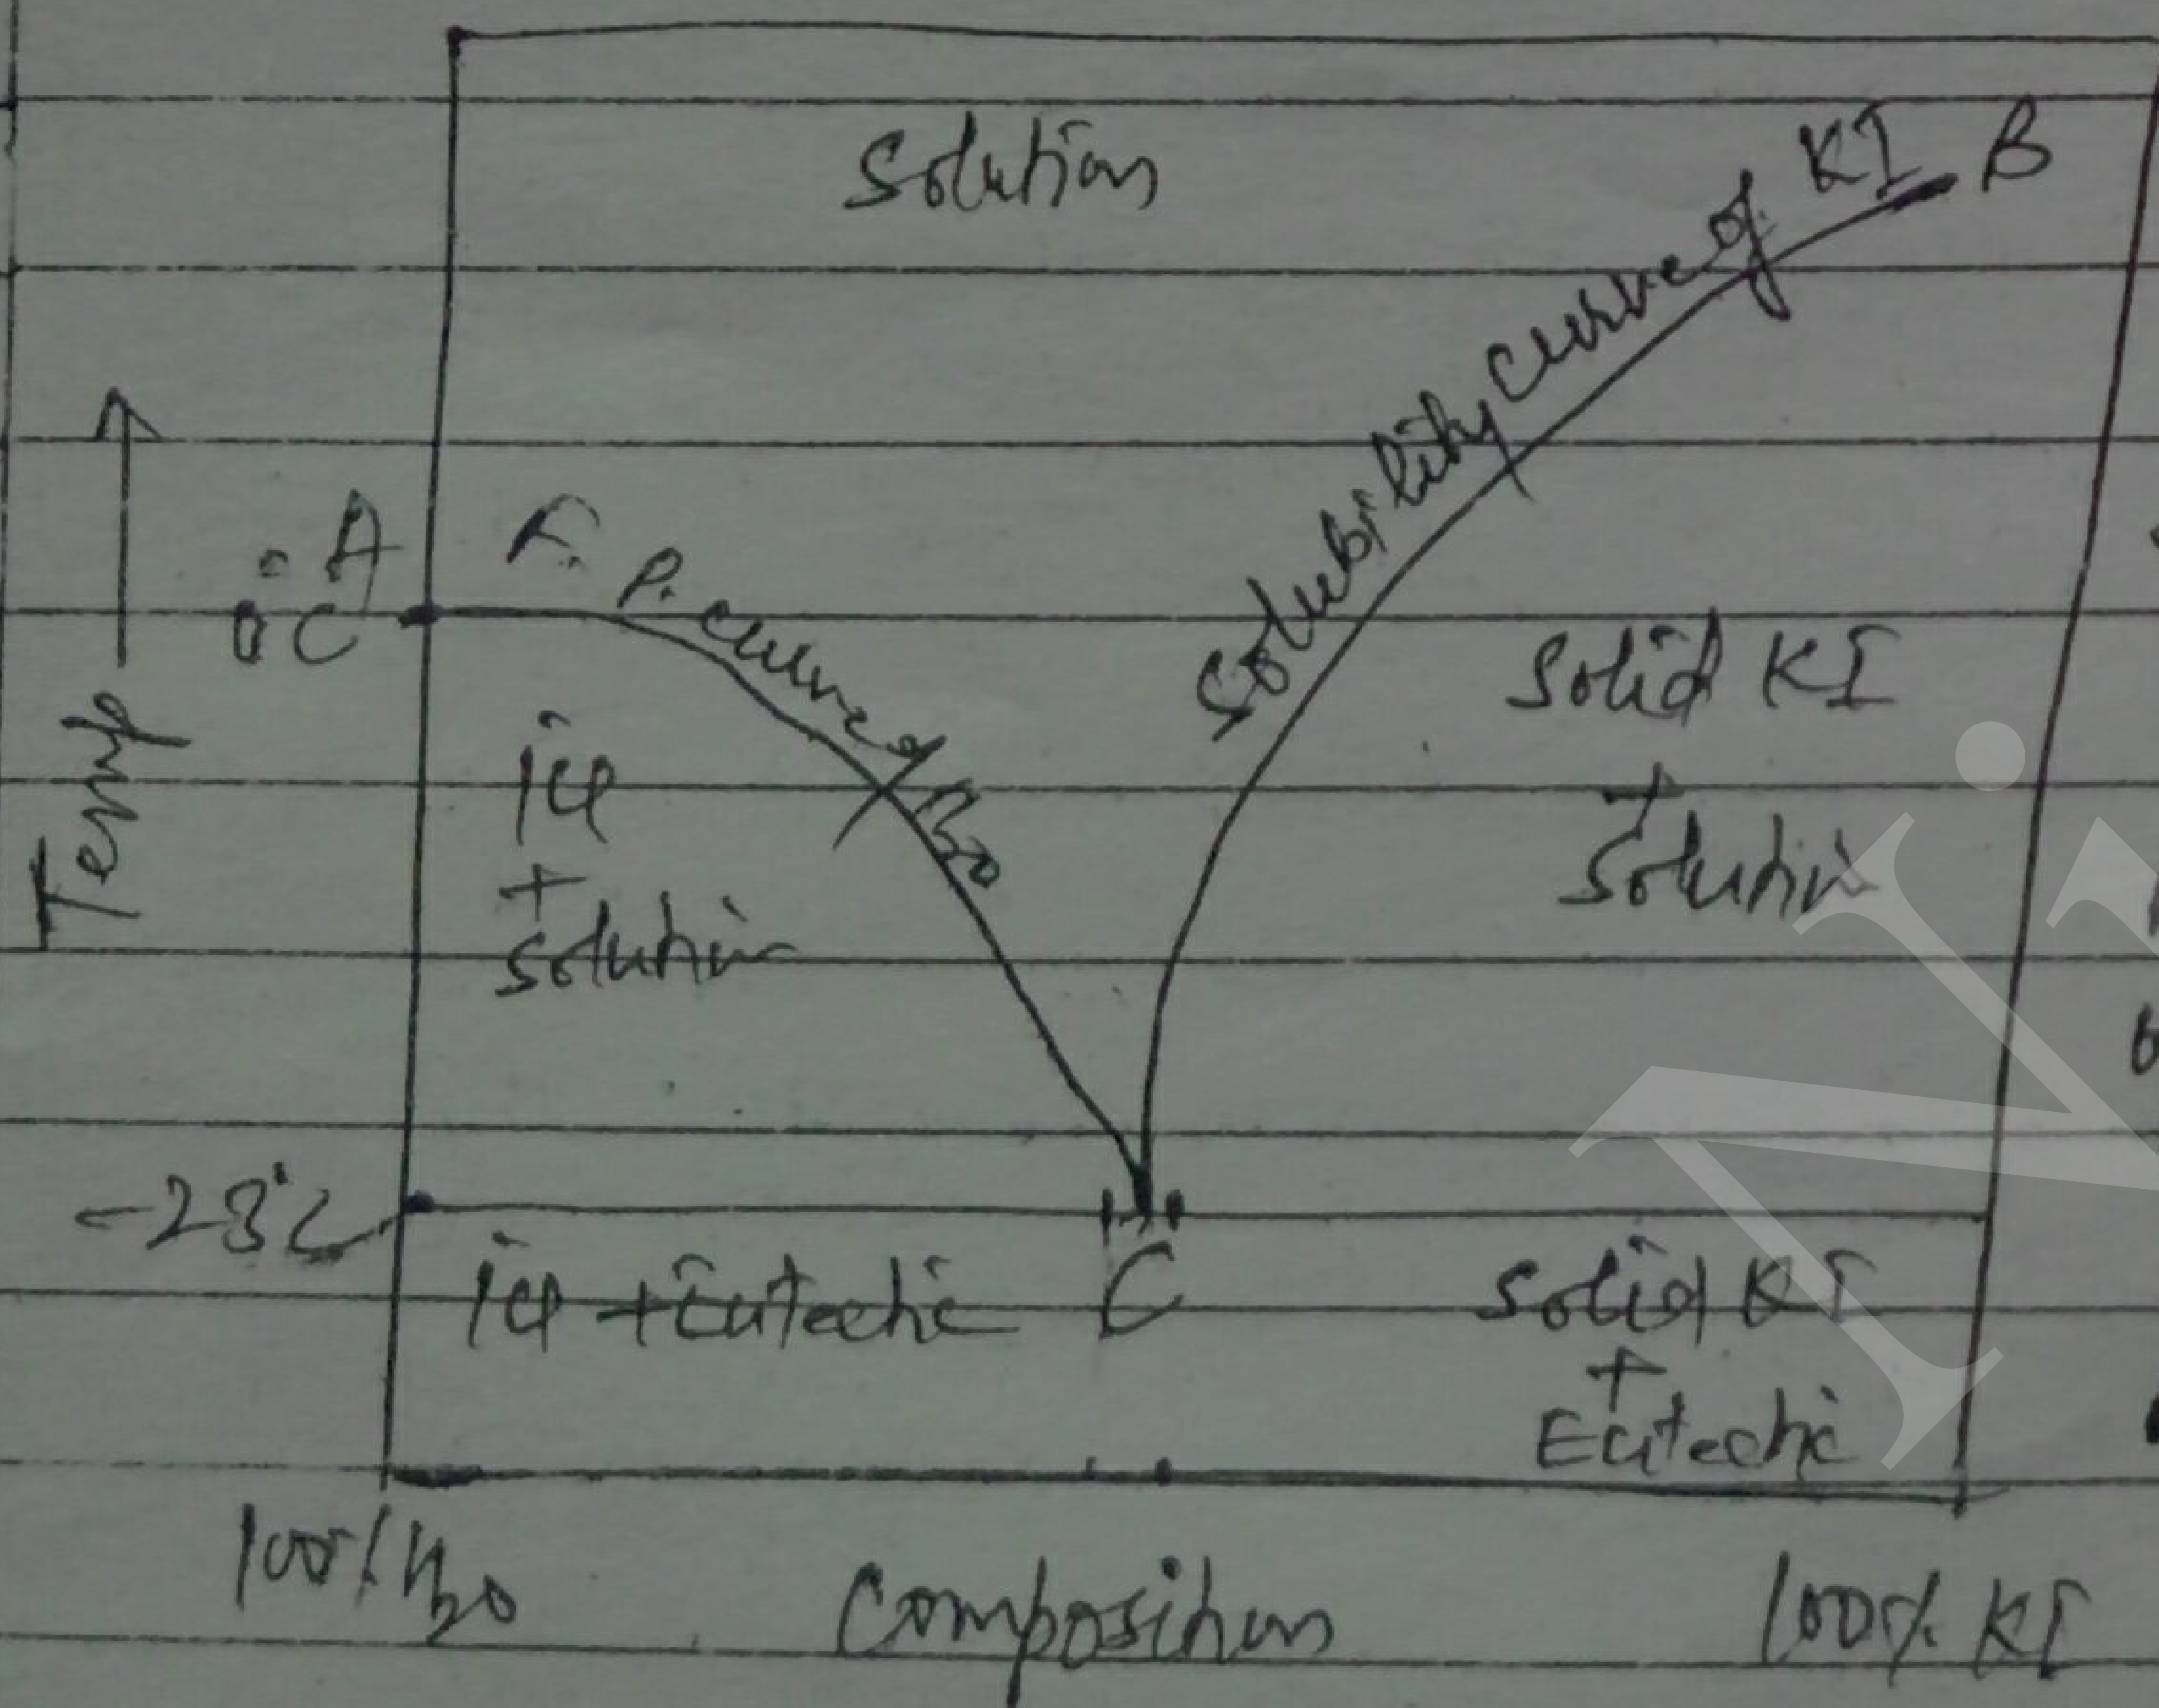 Solution
Solubility curve of KI B
A
0°C
F.P. curve of H2O
Temp
ice
+
solution
Solid KI
+
Solution
-23°C
ice + Eutectic
C
Solid KI
+
Eutectic
100% H2O
Composition
100% KI